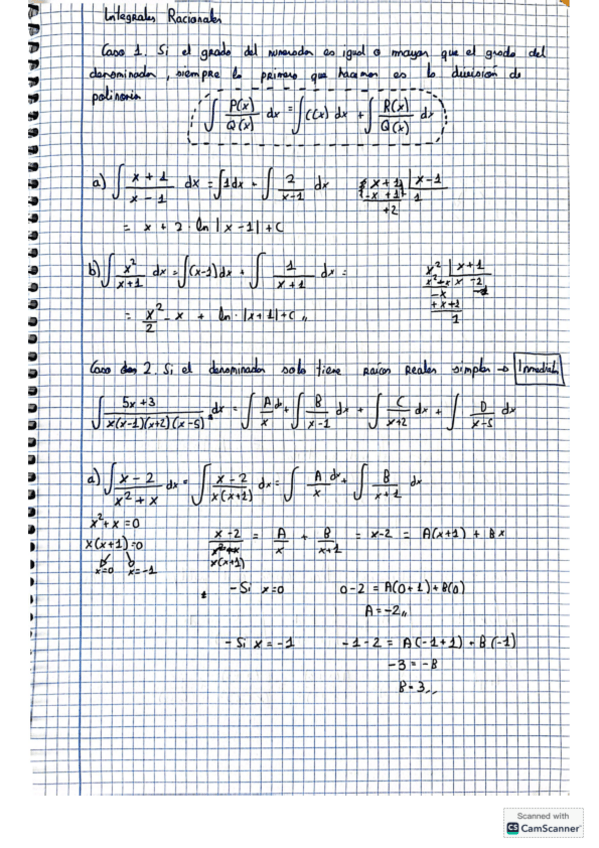 Integrales Racionales
Caso 1. Si el grado del numerador es igual o mayor que el grado del
denominador, siempre lo primero que hacemos es la división de
polinomio
∫ P(x)/Q(x) dx = ∫ C(x) dx + ∫ R(x)/Q(x) dx
a) ∫ x+1/x-1 dx = ∫1dx + ∫ 2/x-1 dx
x+1 | x-1
-x+1 1
+2
= x + 2·ln|x-1|+C
b) ∫ x²/x+1 dx = ∫(x-1)dx + ∫ 1/x+1 dx =
x² | x+1
-x
+x+1
1
= x²/2 - x + ln·|x+1|+C,,
Caso 2. Si el denominador solo tiene raíces Reales simples → Inmediata
∫ 5x+3/x(x-1)(x+2)(x-5) dx = ∫ A/x dx + ∫ B/x-1 dx + ∫ C/x+2 dx + ∫ D/x-5 dx
a) ∫ x-2/x²+x dx = ∫ x-2/x(x+1) dx = ∫ A/x dx + ∫ B/x+1 dx
x²+x=0
x(x+1)=0
x=0 x=-1
x-2/x(x+1) = A/x + B/x+1 = x-2 = A(x+1) + Bx
- Si x=0 0-2 = A(0+1)+B(0)
A=-2,,
- Si x=-1 -1-2 = A(-1+1)+B(-1)
-3 = -B
B=3,,
Scanned with
CS CamScanner